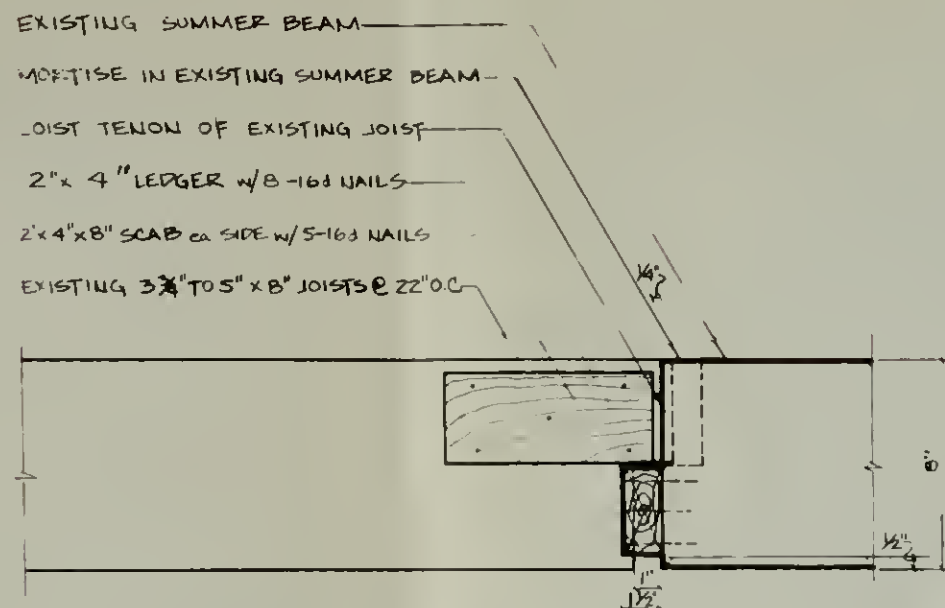 EXISTING SUMMER BEAM
MORTISE IN EXISTING SUMMER BEAM
JOIST TENON OF EXISTING JOIST
2" x 4" LEDGER w/ 8-16d NAILS
2"x4"x8" SCAB ea SIDE w/ 5-16d NAILS
EXISTING 3¾" TO 5" x 8" JOISTS @ 22" O.C
1/4"
8"
1/2"
1"
1/2"